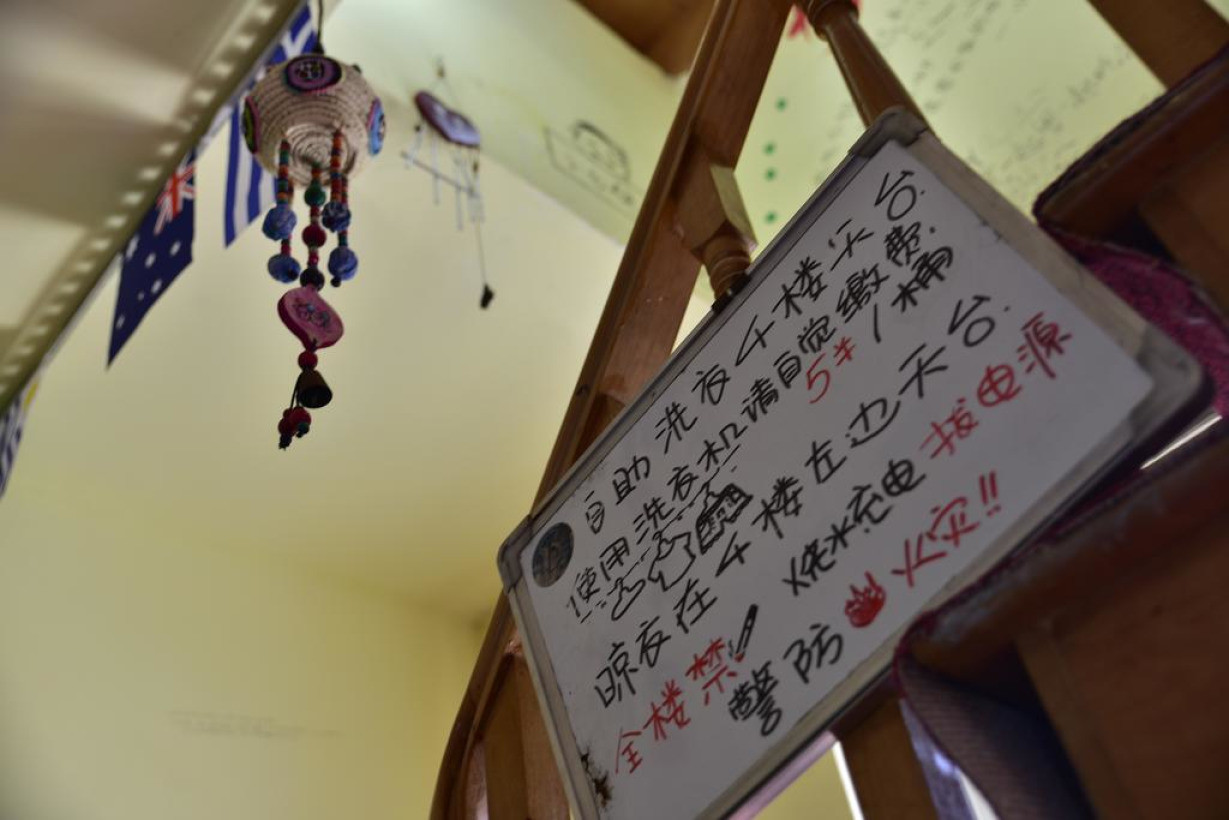 自助洗衣4楼天台.
使用洗衣机请自觉缴费.
5¥/桶
晾衣在4楼左边天台.
全楼禁 烧水充电拔电源
警防火灾!!